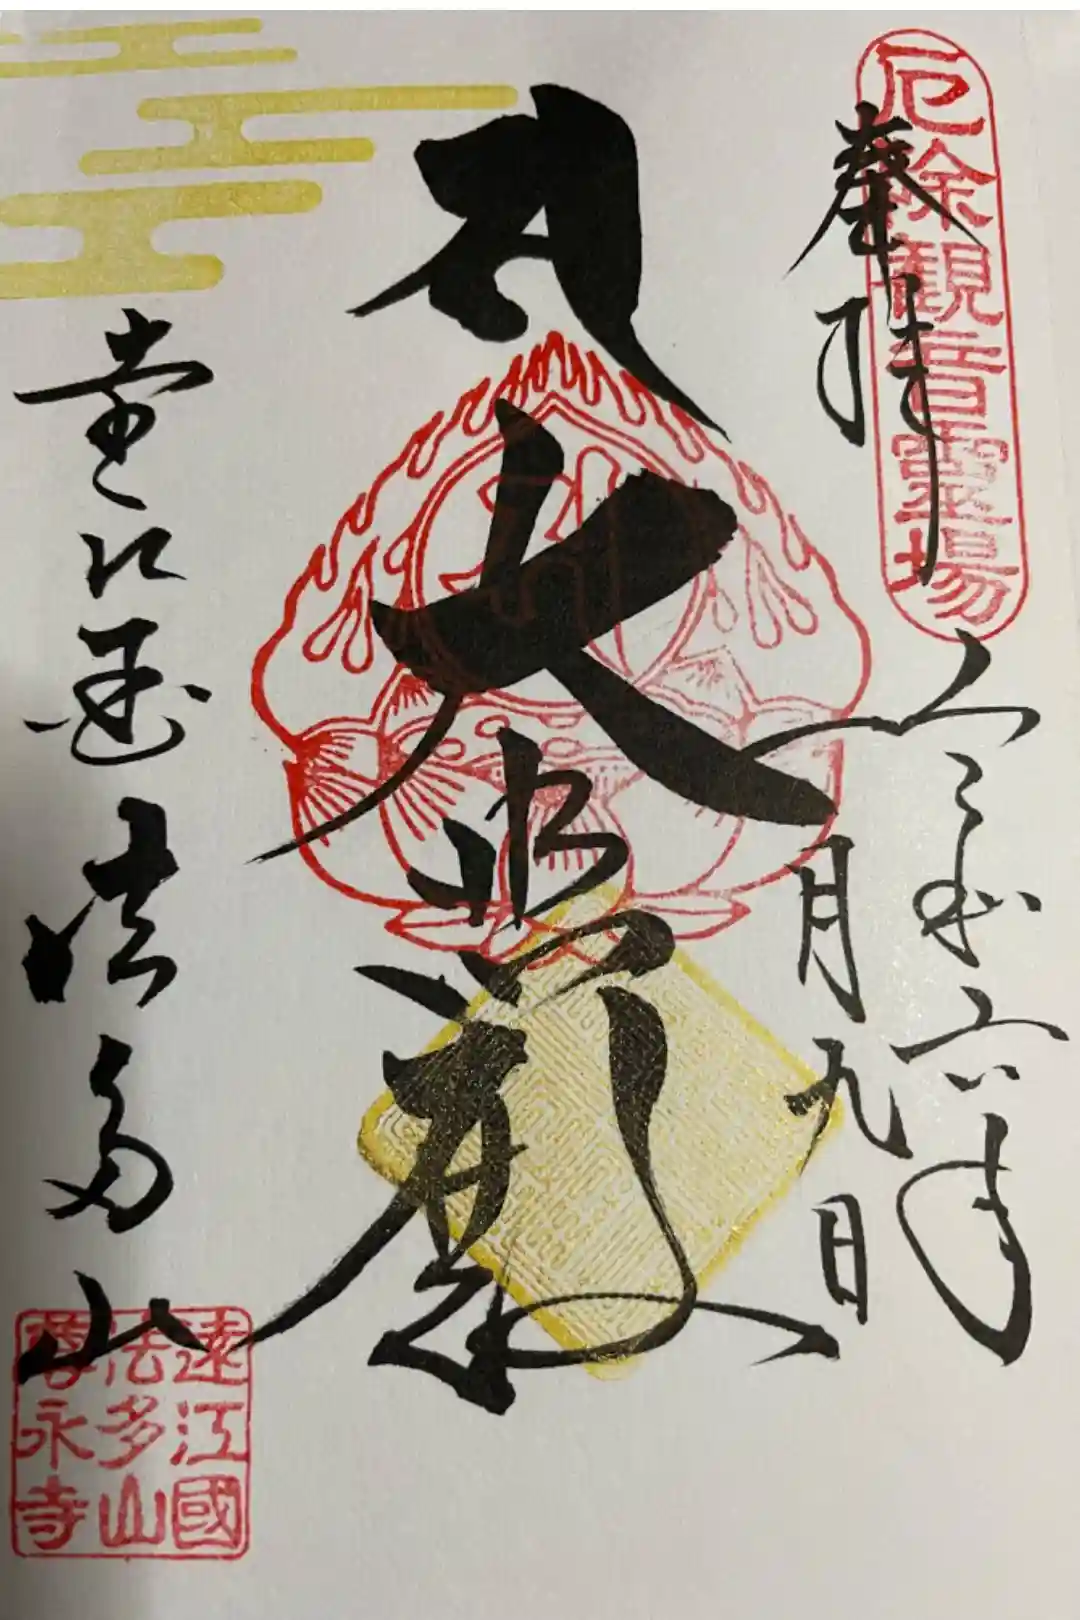 厄除観音霊場
奉拝
令和六年
一月九日
大悲殿
遠江國法多山
遠江國
法多山
尊永寺